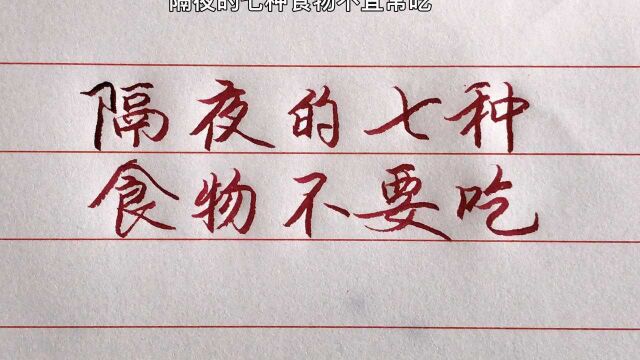 隔夜的七种食物不宜常吃
隔夜的七种
食物不要吃